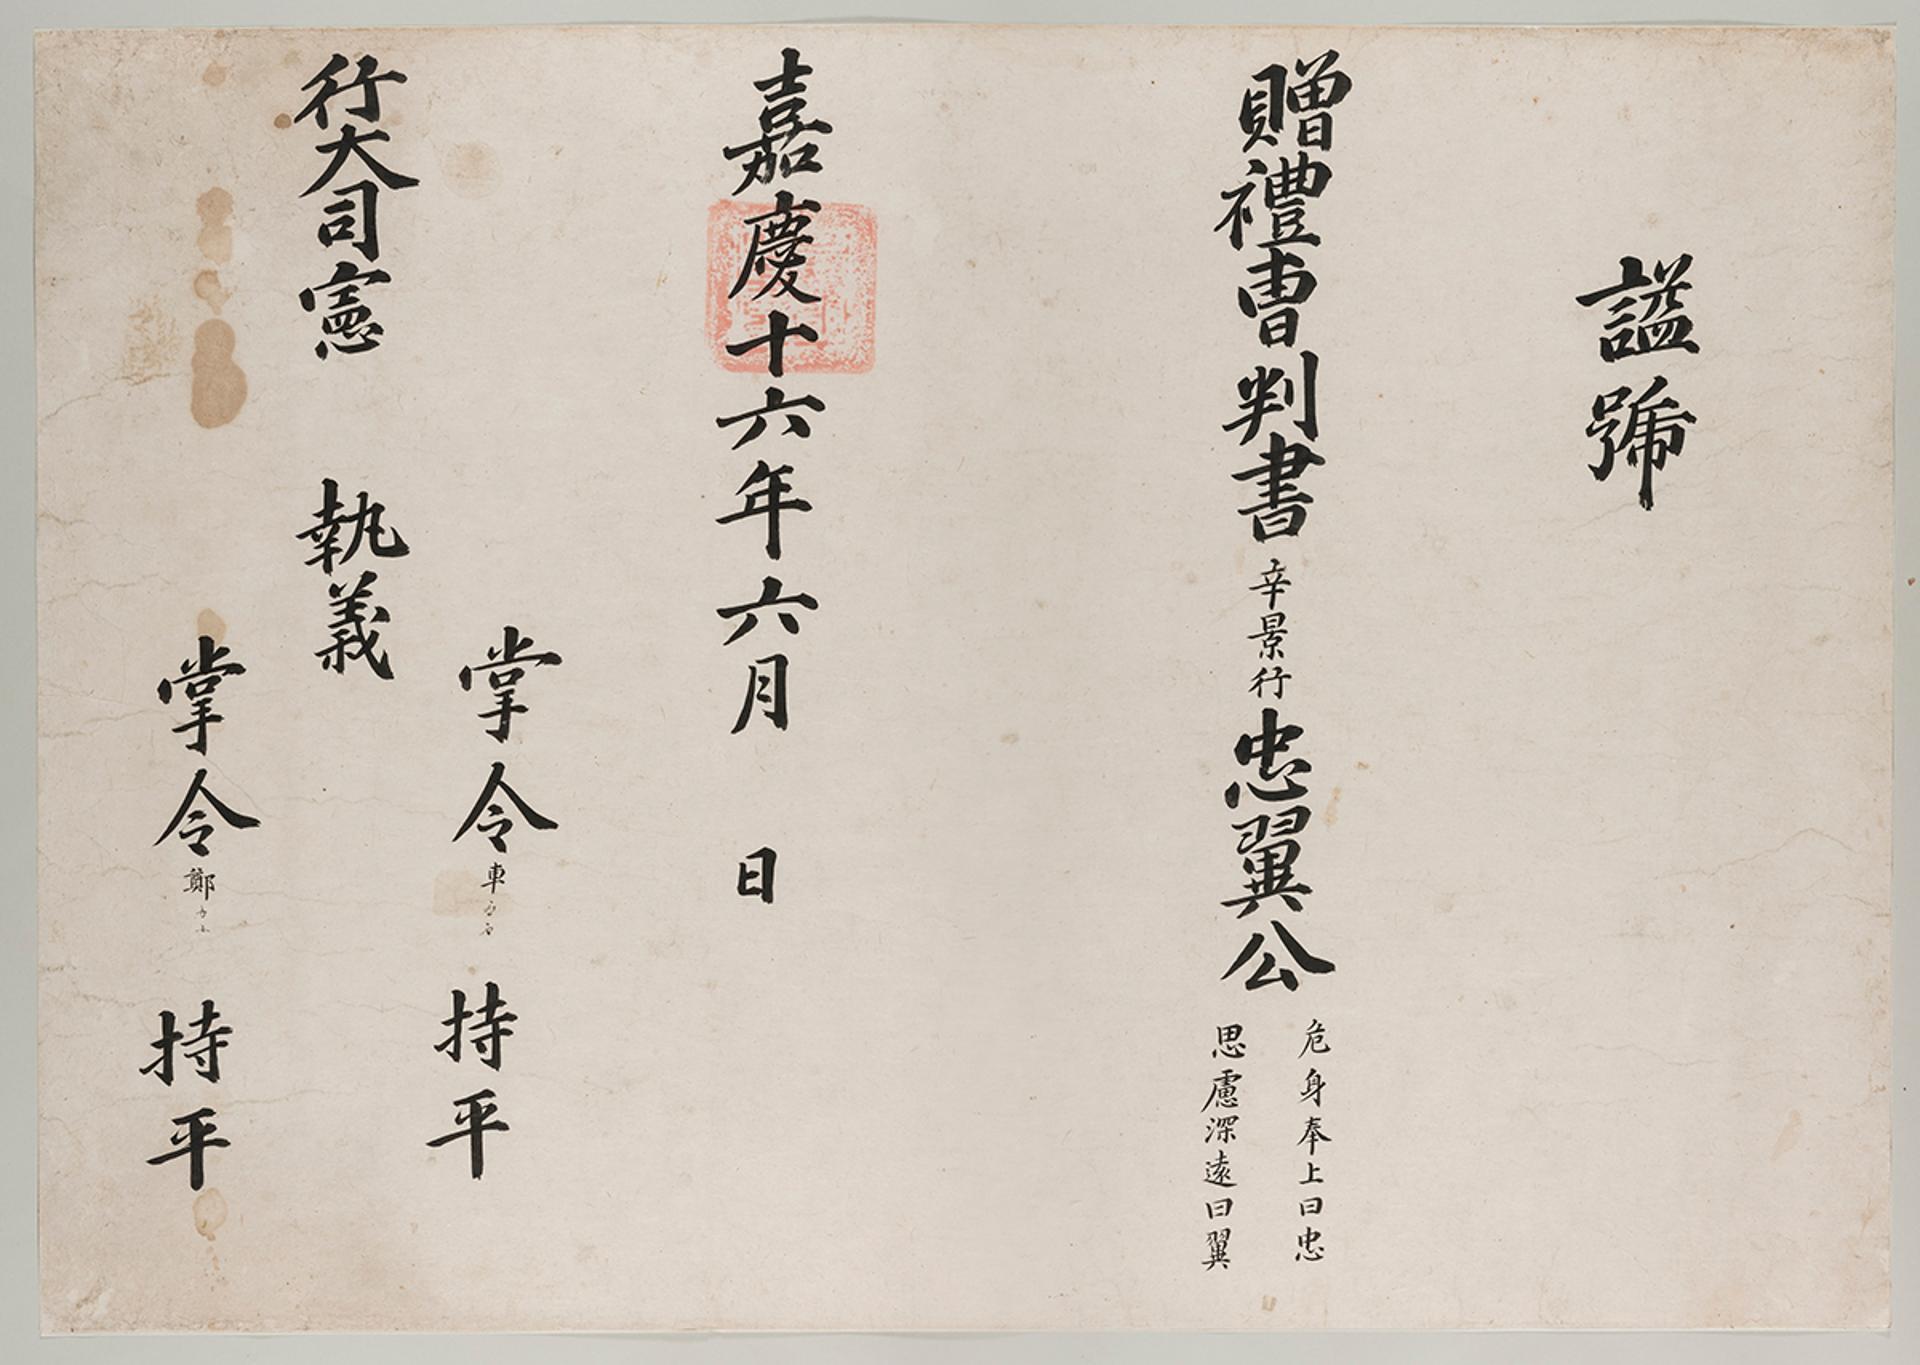 謚號
贈禮曺判書辛景行忠翼公
危身奉上曰忠
思慮深遠曰翼
嘉慶十六年六月 日
掌令車 持平
行大司憲 執義
掌令鄭 持平